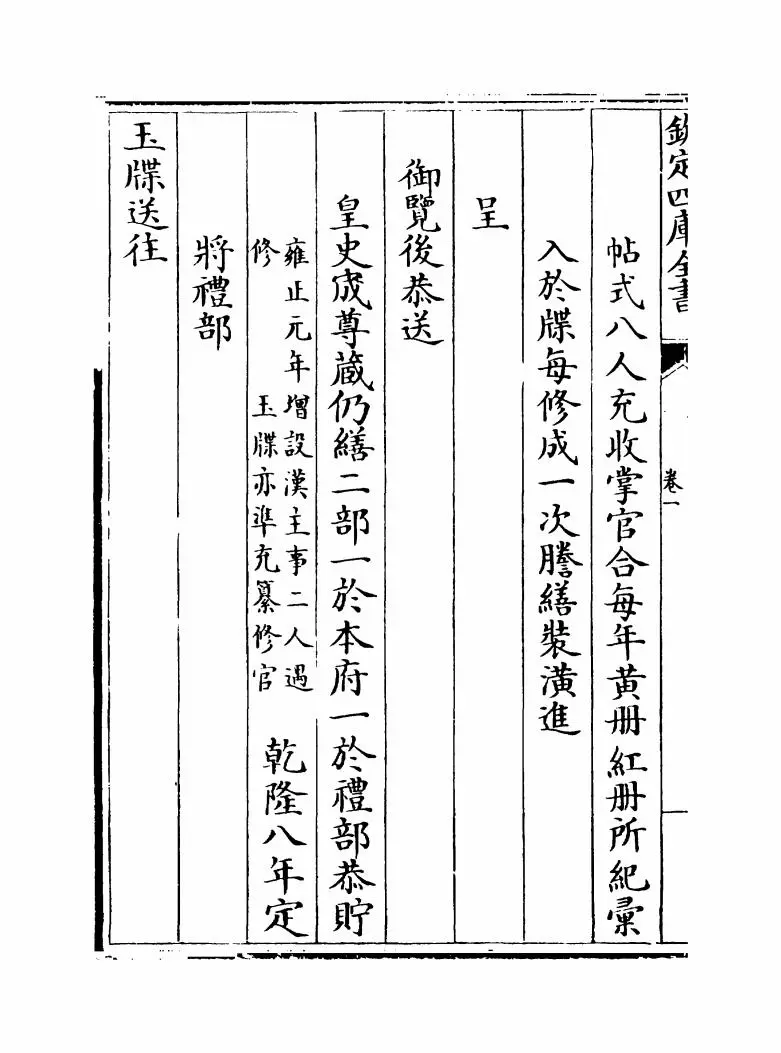 欽定四庫全書
卷一
帖式八人充收掌官合每年黄册紅册所紀彚
入於牒每修成一次謄繕裝潢進
呈
御覽後恭送
皇史宬尊藏仍繕二部一於本府一於禮部恭貯
雍正元年增設漢主事二人遇
修 玉牒亦準充纂修官
乾隆八年定
將禮部
玉牒送往